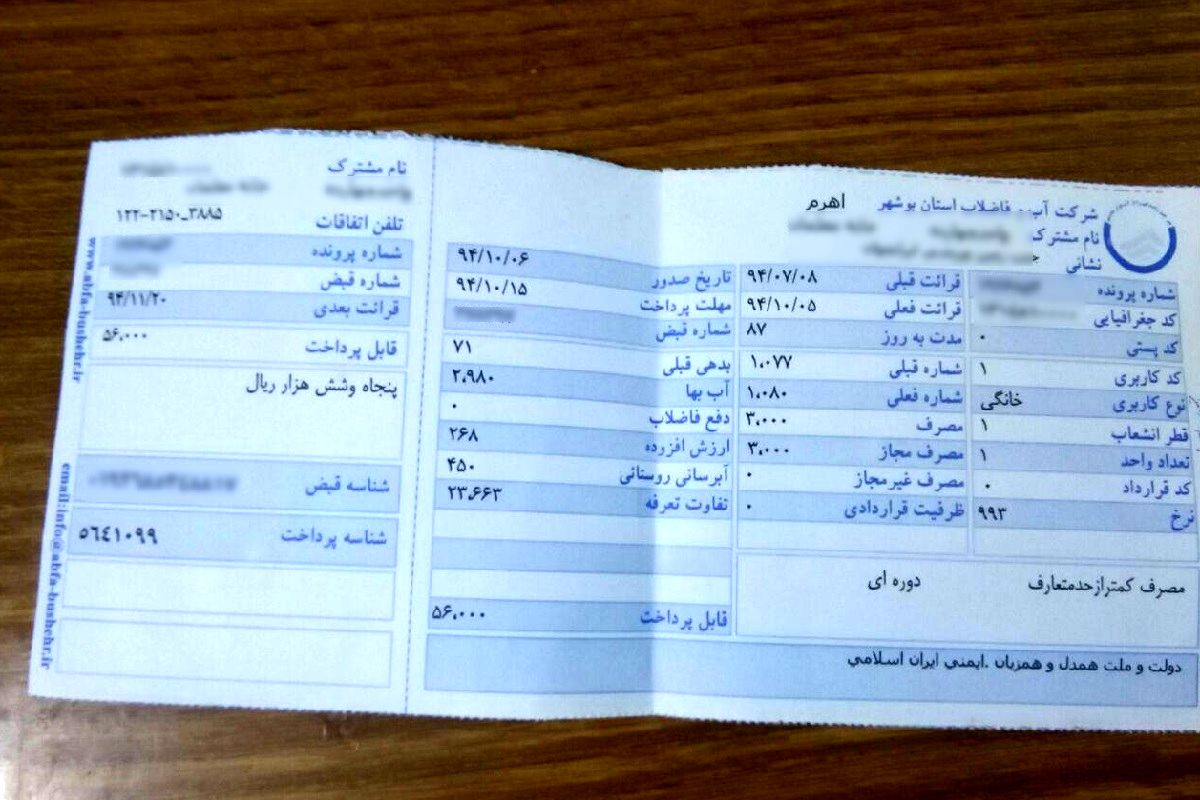 شرکت آب و فاضلاب استان بوشهر اهرم
نام مشترک
نشانی
شماره پرونده
کد جغرافیایی
کد پستی ۰
کد کاربری ۱
نوع کاربری خانگی
قطر انشعاب ۱
تعداد واحد ۱
کد قرارداد ۰
نرخ ۹۹۳
قرائت قبلی ۹۴/۰۷/۰۸
قرائت فعلی ۹۴/۱۰/۰۵
مدت به روز ۸۷
شماره قبلی ۱،۰۷۷
شماره فعلی ۱،۰۸۰
مصرف ۳،۰۰۰
مصرف مجاز ۳،۰۰۰
مصرف غیرمجاز ۰
ظرفیت قراردادی ۰
۹۴/۱۰/۰۶
تاریخ صدور
مهلت پرداخت ۹۴/۱۰/۱۵
شماره قبض
بدهی قبلی ۷۱
آب بها ۲،۹۸۰
دفع فاضلاب ۰
ارزش افزرده ۲۶۸
آبرسانی روستائی ۴۵۰
تفاوت تعرفه ۲۳،۶۶۳
قابل پرداخت ۵۶،۰۰۰
مصرف کمترازحدمتعارف دوره ای
دولت و ملت همدل و همزبان .ایمنی ایران اسلامی
نام مشترک
تلفن اتفاقات ۱۲۲-۲۱۵۰_۳۸۸۵
شماره پرونده
شماره قبض
قرائت بعدی ۹۴/۱۱/۲۰
قابل پرداخت ۵۶،۰۰۰
پنجاه وشش هزار ریال
شناسه قبض
شناسه پرداخت ٥٦٤١٠٩٩
www.abfa-bushehr.ir
email:info@abfa-bushehr.ir